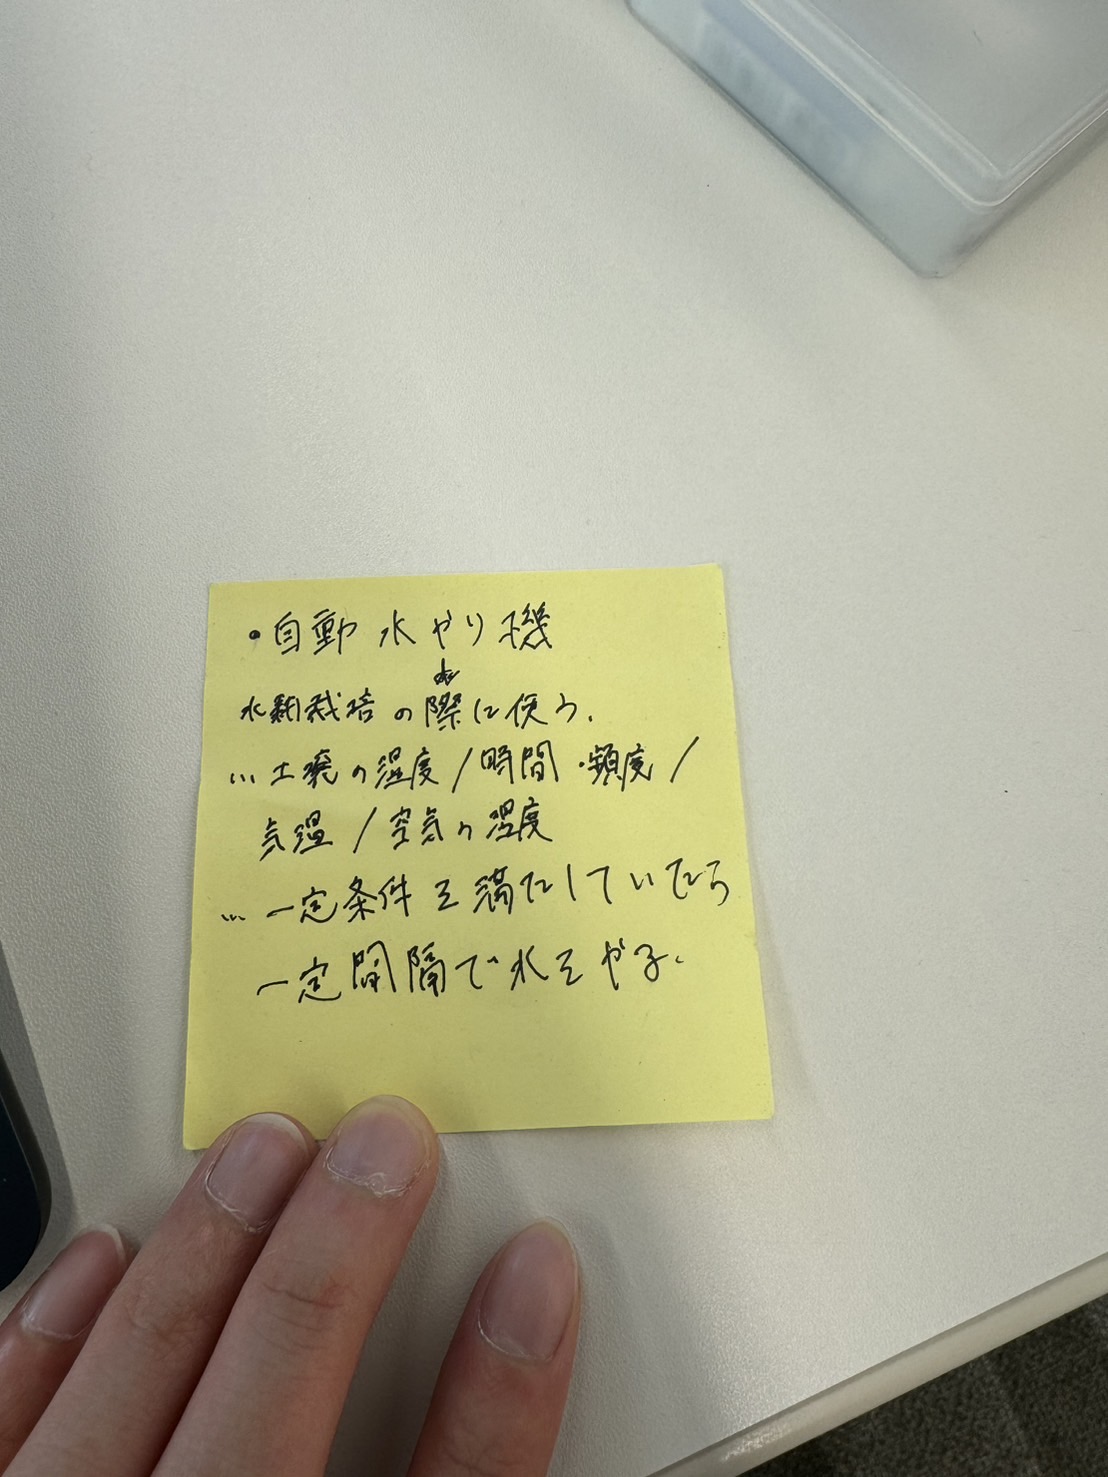 ・自動水やり機
水耕栽培の際に使う。
…土壌の湿度/時間・頻度/
気温/空気の湿度
…一定条件を満たしていたら
一定間隔で水をやる。